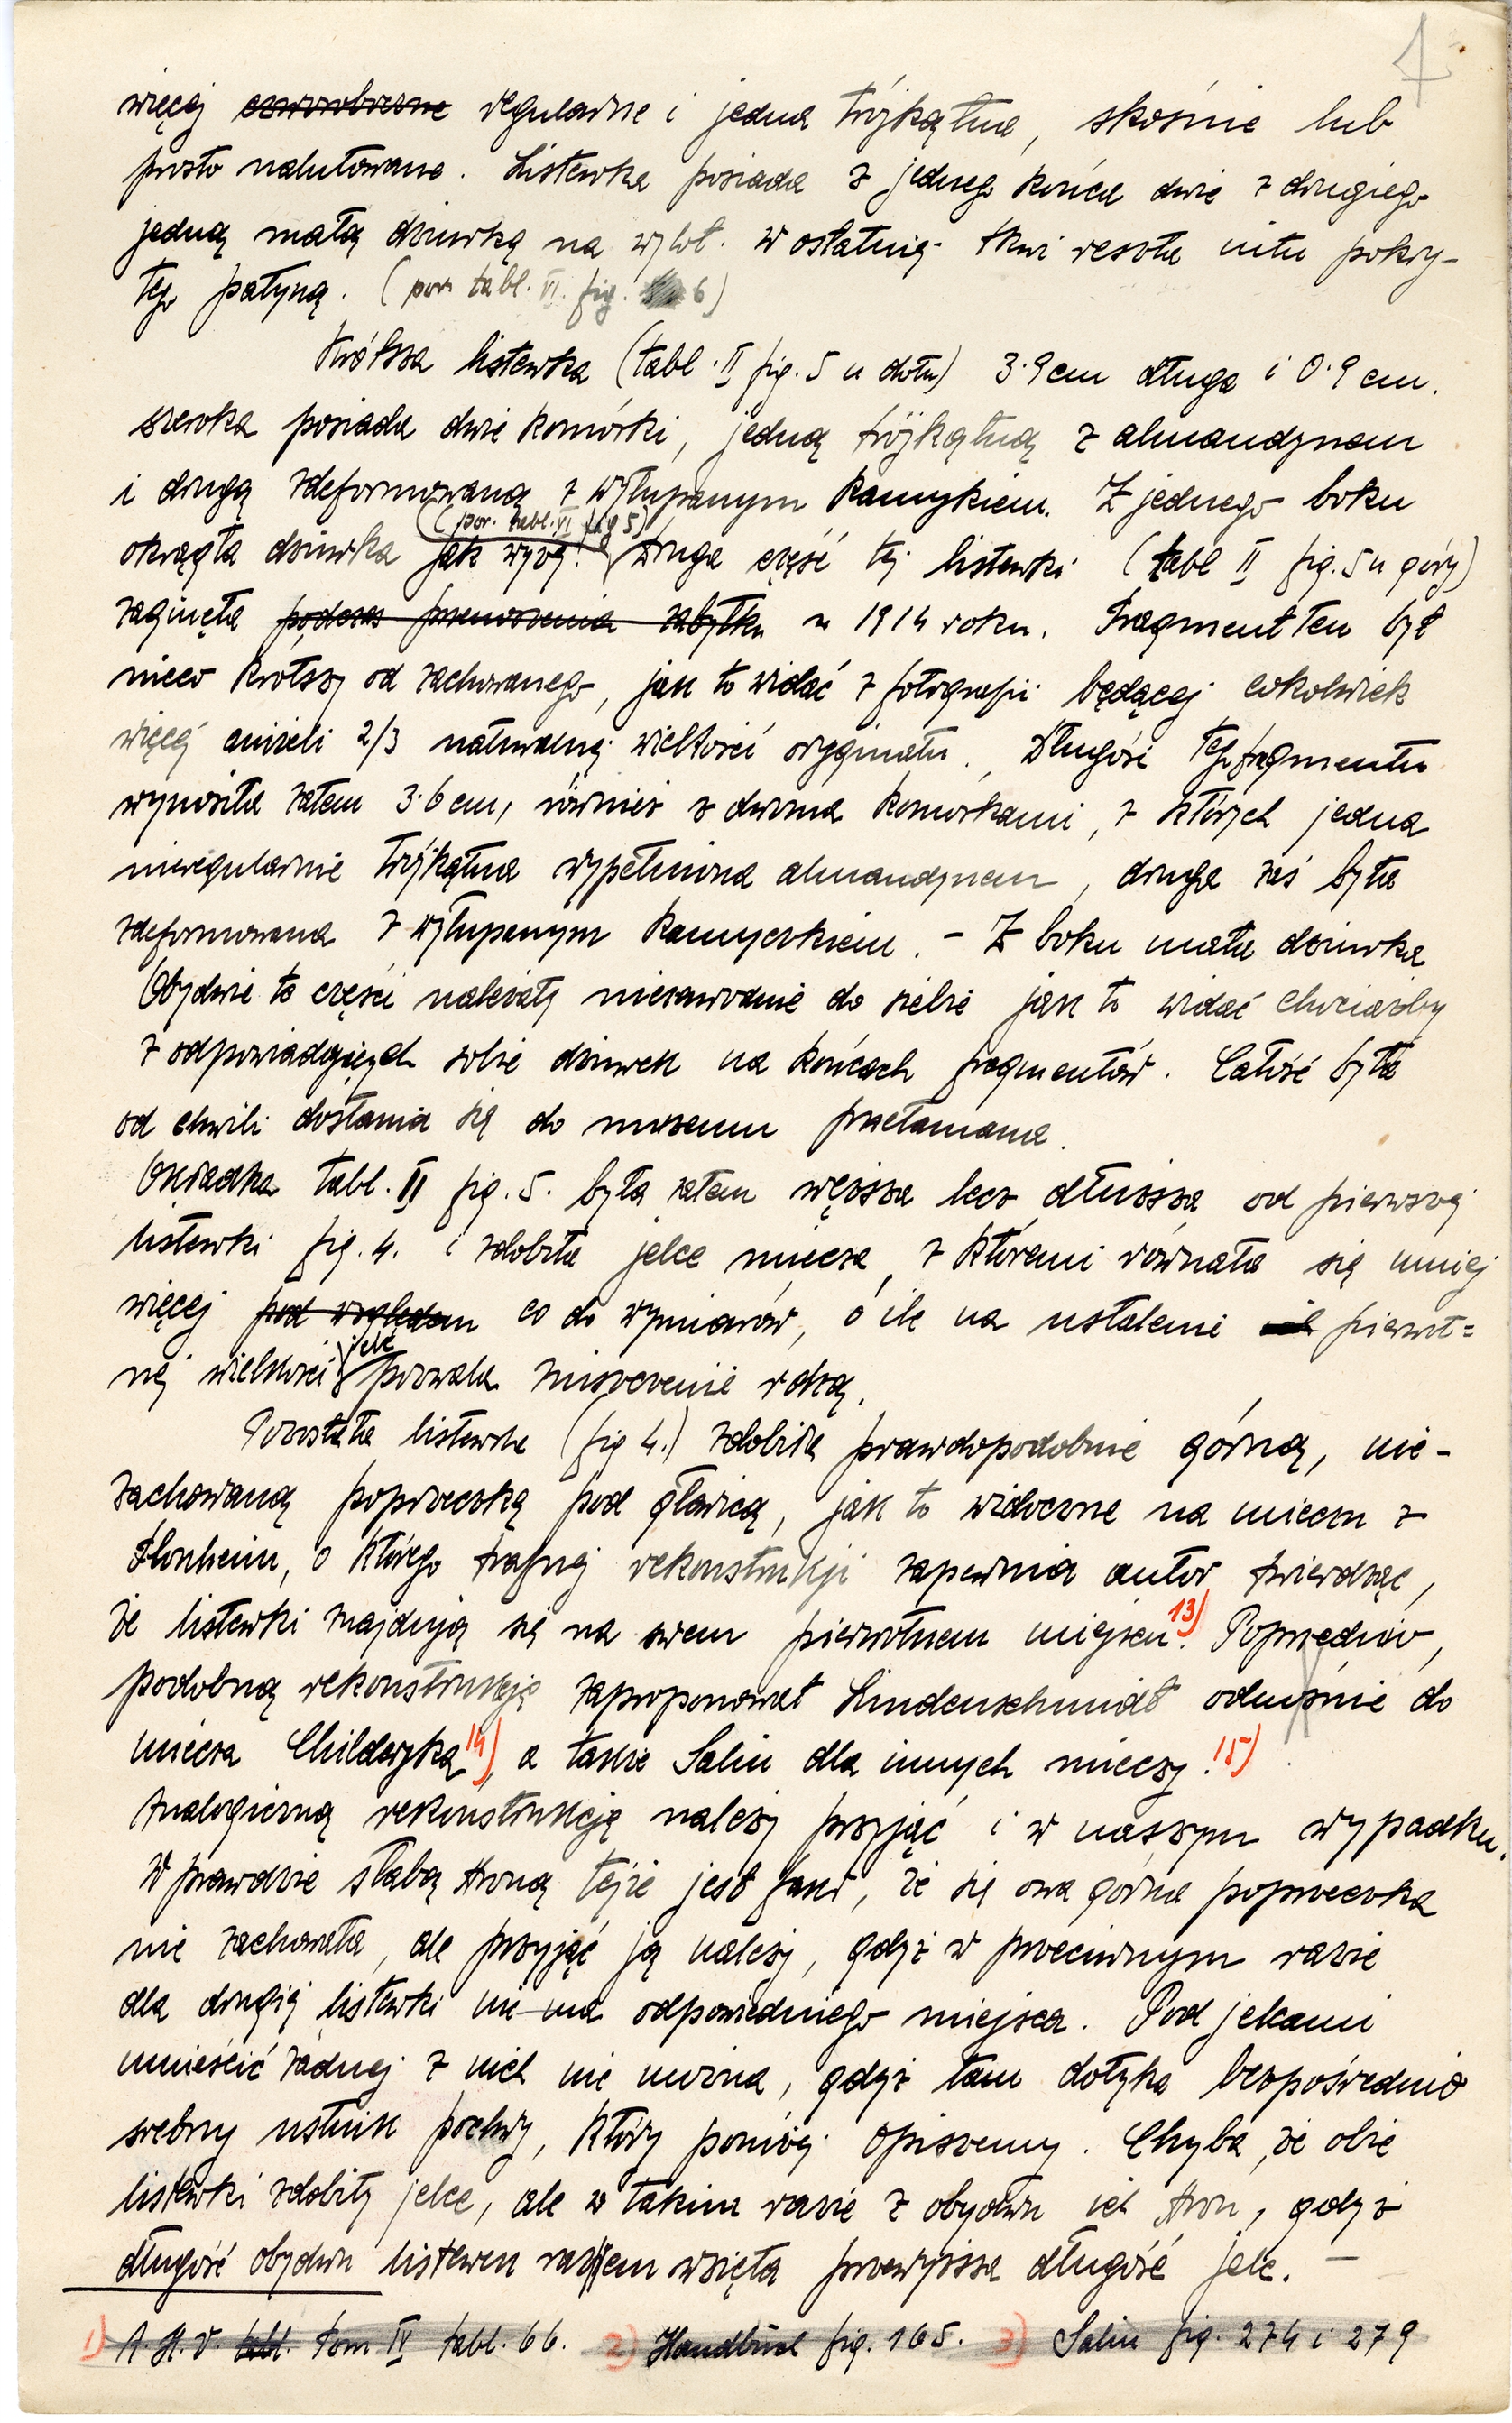 7
więcej czworoboczne regularne i jedna trójkątna, skośnie lub
prosto nalutowane. Listewka posiada z jednego końca dwie z drugiego
jedną małą dziurkę na wylot. W ostatniej tkwi reszta nitu pokry-
tego patyną. (por. tabl. VI. fig. 6)
Krótsza listewka (tabl. II fig. 5 u dołu) 3·9 cm długa i 0·9 cm.
szeroka posiada dwie komórki, jedną trójkątną z almandynem
i drugą zdeformowaną z wyłupanym kamykiem. Z jednego boku
(por. tabl. VI fig 5)
okrągła dziurka jak wyżej. Druga część tej listewki (tabl II fig. 5 u góry)
zaginęła podczas przenoszenia zabytku w 1914 roku. Fragment ten był
nieco krótszy od zachowanego, jak to widać z fotografii będącej cokolwiek
więcej aniżeli 2/3 naturalnej wielkości oryginału. Długość tego fragmentu
wynosiła zatem 3·6 cm, również z dwoma komórkami, z których jedna
nieregularnie trójkątna wypełniona almandynem, druga zaś była
zdeformowana z wyłupanym kamyczkiem. – Z boku mała dziurka
Obydwie te części należały niezawodnie do siebie jak to widać chociażby
z odpowiadających sobie dziurek na końcach fragmentów. Całość była
od chwili dostania się do muzeum przełamana.
Okładka tabl. II fig. 5. była zatem węższa lecz dłuższa od pierwszej
listewki fig. 4. i zdobiła jelce miecza, z któremi równała się mniej
więcej pod względem co do wymiarów, o ile na ustalenie ich pierwot=
jelc
nej wielkości pozwala zniszczenie rdzą.
Pozostała listewka (fig 4.) zdobiła prawdopodobnie górną, nie-
zachowaną poprzeczkę pod głowicą, jak to widoczne na mieczu z
Flonheim, o którego trafnej rekonstrukcji zapewnia autor twierdząc,
że listewki znajdują się na swem pierwotnem miejscu. 13) Poprzednio,
podobną rekonstrukcję zaproponował Lindenschmidt odnośnie do
miecza Childeryka 14), a także Salin dla innych mieczy. 15)
Analogiczną rekonstrukcję należy przyjąć i w naszym wypadku.
Wprawdzie słabą stroną tejże jest fakt, że się owa górna poprzeczka
nie zachowała, ale przyjąć ją należy, gdyż w przeciwnym razie
dla drugiej listewki nie ma odpowiedniego miejsca. Pod jelcami
umieścić żadnej z nich nie można, gdyż tam dotyka bezpośrednio
srebrny ustnik pochwy, który poniżej opiszemy. Chyba, że obie
listewki zdobiły jelce, ale w takim razie z obydwu ich stron, gdyż
długość obydwu listewek razem wzięta przewyższa długość jelc. –
1) A. H. V. tabl. tom IV tabl. 66. 2) Handbuch fig. 165. 3) Salin fig. 274 i 279